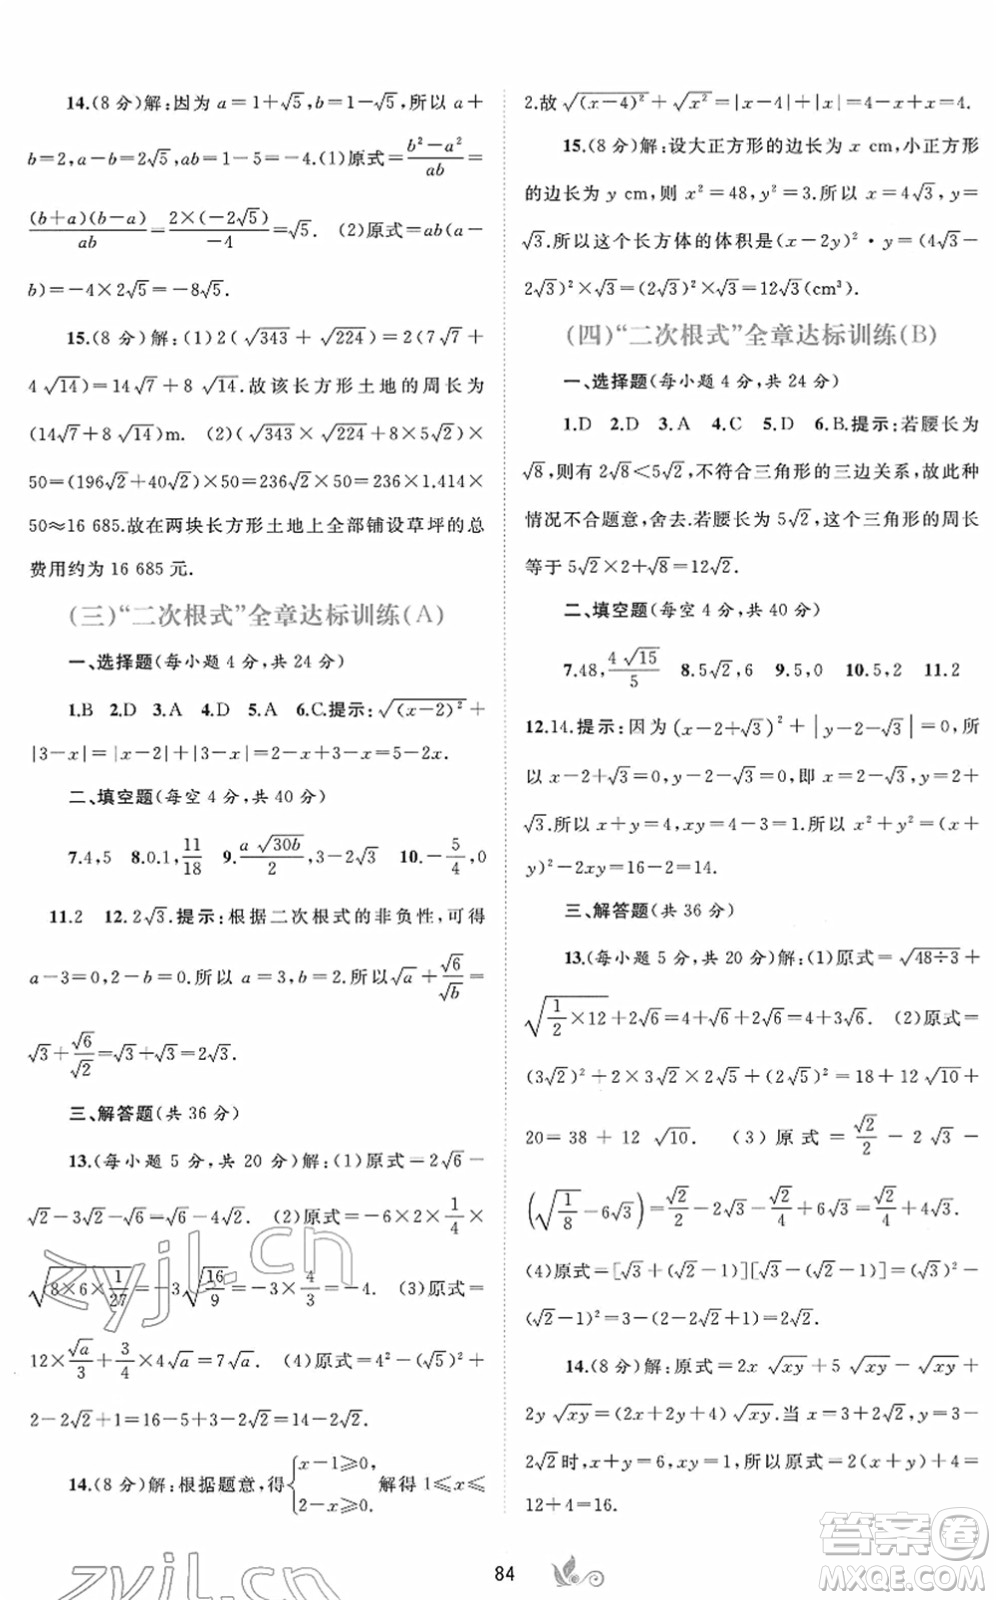 14.(8 分)解:因为 a=1+√5,b=1-√5,所以 a+
b=2,a-b=2√5,ab=1-5=-4.(1)原式=(b²-a²)/ab=
(b+a)(b-a)/ab=2×(-2√5)/-4=√5. (2)原式=ab(a-
b)=-4×2√5=-8√5.
15.(8 分)解:(1)2(√343+√224)=2(7√7+
4√14)=14√7+8√14.故该长方形土地的周长为
(14√7+8√14)m. (2)(√343×√224+8×5√2)×
50=(196√2+40√2)×50=236√2×50≈236×1.414×
50≈16 685.故在两块长方形土地上全部铺设草坪的总
费用约为 16 685 元.
(三)“二次根式”全章达标训练(A)
一、选择题(每小题 4 分,共 24 分)
1.B 2.D 3.A 4.D 5.A 6.C.提示:√(x-2)²+
|3-x|=|x-2|+|3-x|=2-x+3-x=5-2x.
二、填空题(每空 4 分,共 40 分)
7.4,5 8.0.1,11/18 9.a√30b/2,3-2√3 10.-5/4,0
11.2 12.2√3.提示:根据二次根式的非负性,可得
a-3=0,2-b=0.所以 a=3,b=2.所以√a+√6/√b=
√3+√6/√2=√3+√3=2√3.
三、解答题(共 36 分)
13.(每小题 5 分,共 20 分)解:(1)原式=2√6-
√2-3√2-√6=√6-4√2. (2)原式=-6×2×1/4×
√(8×6×1/27)=-3√(16/9)=-3×4/3=-4. (3)原式=
12×√a/3+3/4×4√a=7√a. (4)原式=4²-(√5)²+
2-2√2+1=16-5+3-2√2=14-2√2.
14.(8 分)解:根据题意,得{x-1≥0, 2-x≥0. 解得 1≤x≤
2.故√(x-4)²+√x²=|x-4|+|x|=4-x+x=4.
15.(8 分)解:设大正方形的边长为 x cm,小正方形
的边长为 y cm,则 x²=48,y²=3.所以 x=4√3,y=
√3.所以这个长方体的体积是(x-2y)²·y=(4√3-
2√3)²×√3=(2√3)²×√3=12√3(cm³).
(四)“二次根式”全章达标训练(B)
一、选择题(每小题 4 分,共 24 分)
1.D 2.D 3.A 4.C 5.D 6.B.提示:若腰长为
√8,则有 2√8<5√2,不符合三角形的三边关系,故此种
情况不合题意,舍去.若腰长为 5√2,这个三角形的周长
等于 5√2×2+√8=12√2.
二、填空题(每空 4 分,共 40 分)
7.48,4√15/5 8.5√2,6 9.5,0 10.5,2 11.2
12.14.提示:因为(x-2+√3)²+|y-2-√3|=0,所
以 x-2+√3=0,y-2-√3=0,即 x=2-√3,y=2+
√3.所以 x+y=4,xy=4-3=1.所以 x²+y²=(x+
y)²-2xy=16-2=14.
三、解答题(共 36 分)
13.(每小题 5 分,共 20 分)解:(1)原式=√(48÷3)+
√(1/2×12)+2√6=4+√6+2√6=4+3√6. (2)原式=
(3√2)²+2×3√2×2√5+(2√5)²=18+12√10+
20=38+12√10. (3)原式=√2/2-2√3-
(√(1/8)-6√3)=√2/2-2√3-√2/4+6√3=√2/4+4√3.
(4)原式=[√3+(√2-1)][√3-(√2-1)]=(√3)²-
(√2-1)²=3-(3-2√2)=2√2.
14.(8 分)解:原式=2x√xy+5√xy-√xy+
2y√xy=(2x+2y+4)√xy.当 x=3+2√2,y=3-
2√2时,x+y=6,xy=1.所以原式=2(x+y)+4=
12+4=16.
84
zyjl.cn
zyjl.cn
答案卷
MXQE.COM